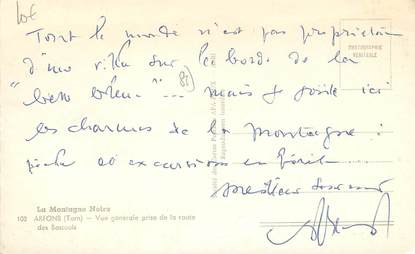 Tout le monde n'est pas propriétaire
d'une villa sur les bords de la
"belle bleue"... mais je goûte ici
les charmes de la montagne :
pêche et excursions en forêt...
meilleur souvenir
PHOTOGRAPHIE
VERITABLE
La Montagne Noire
103 ARFONS (Tarn) — Vue générale prise de la route
des Escouls